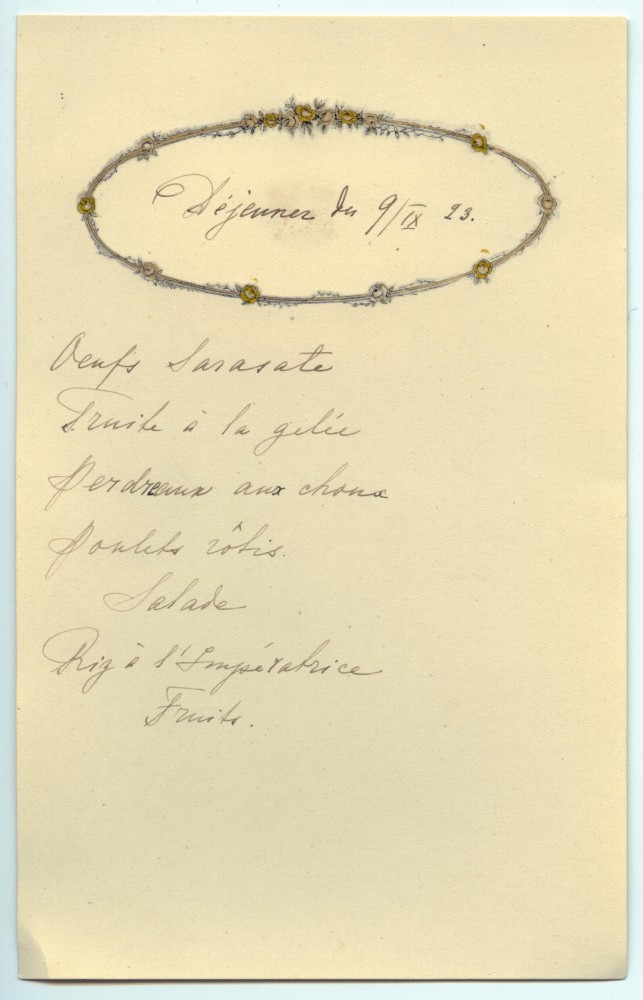 Déjeuner du 9/IX 23.
Oeufs Sarasate
Truite à la gelée
Perdreaux aux choux
Poulets rôtis.
Salade
Riz à l'Impératrice
Fruits.